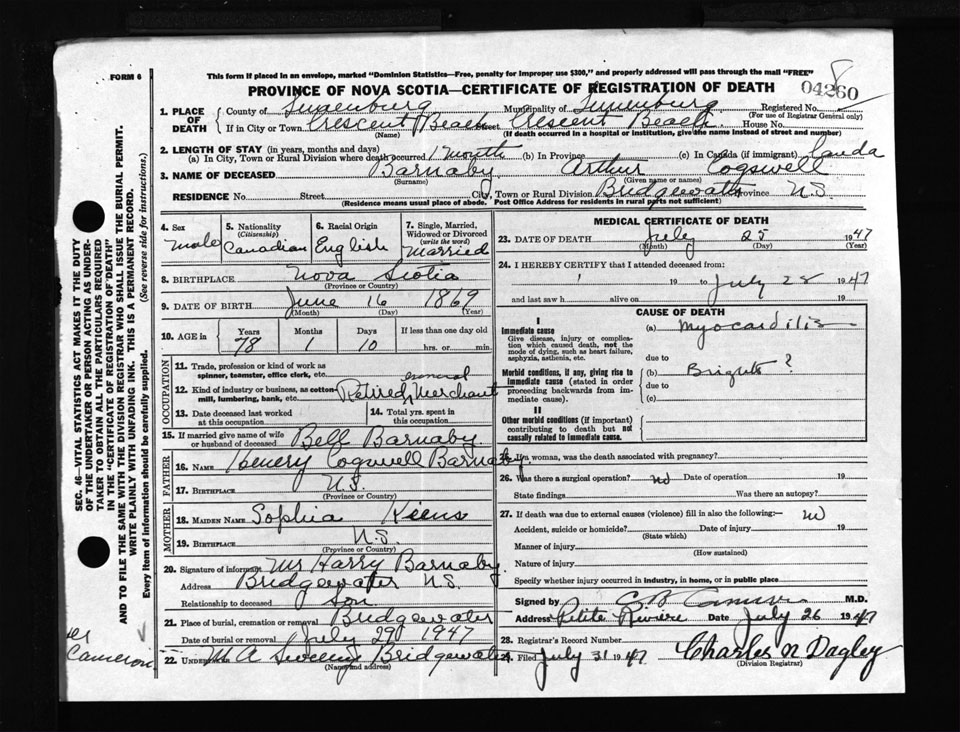 FORM 6
This form if placed in an envelope, marked "Dominion Statistics—Free, penalty for improper use $300," and properly addressed will pass through the mail "FREE"
PROVINCE OF NOVA SCOTIA—CERTIFICATE OF REGISTRATION OF DEATH
04260
8
1. PLACE OF DEATH
County of Lunenburg Municipality of Lunenburg Registered No.
(For use of Registrar General only)
If in City or Town Crescent Beach Street Crescent Beach House No.
(Name) (If death occurred in a hospital or institution, give the name instead of street and number)
2. LENGTH OF STAY (in years, months and days)
(a) In City, Town or Rural Division where death occurred 1 month (b) In Province (c) In Canada (if immigrant)
3. NAME OF DECEASED Barnaby Arthur Cogswell
(Surname) (Given name or names)
RESIDENCE No. Street City, Town or Rural Division Bridgewater Province N.S.
(Residence means usual place of abode. Post Office Address for residents in rural parts not sufficient)
4. Sex
Male
5. Nationality
(Citizenship)
Canadian
6. Racial Origin
English
7. Single, Married, Widowed or Divorced
(write the word)
Married
8. BIRTHPLACE Nova Scotia
(Province or Country)
9. DATE OF BIRTH June 16 1869
(Month) (Day) (Year)
10. AGE in
Years Months Days If less than one day old
78 1 10 hrs. or min.
OCCUPATION
11. Trade, profession or kind of work as
spinner, teamster, office clerk, etc.
12. Kind of industry or business, as cotton-
mill, lumbering, bank, etc. Retired general Merchant
13. Date deceased last worked
at this occupation
14. Total yrs. spent in
this occupation
15. If married give name of wife
or husband of deceased Bell Barnaby
FATHER
16. NAME Henery Cogswell Barnaby
17. BIRTHPLACE N.S.
(Province or Country)
MOTHER
18. MAIDEN NAME Sophia
19. BIRTHPLACE N.S.
(Province or Country)
20. Signature of informant Mr Harry Barnaby
Address Bridgewater N.S.
Relationship to deceased Son
21. Place of burial, cremation or removal Bridgewater
Date of burial or removal July 29 1947
22. Undertaker M A Sweeny Bridgewater
(Name and address)
MEDICAL CERTIFICATE OF DEATH
23. DATE OF DEATH July 25 1947
(Month) (Day) (Year)
24. I HEREBY CERTIFY that I attended deceased from:
19 to July 25 1947
and last saw h alive on 19
CAUSE OF DEATH
I
Immediate cause
Give disease, injury or complica-
tion which caused death, not the
mode of dying, such as heart failure,
asphyxia, asthenia, etc.
(a) Myocarditis
due to
Morbid conditions, if any, giving rise to
immediate cause (stated in order
proceeding backwards from im-
mediate cause).
(b) Brights ?
due to
(c)
II
Other morbid conditions (if important)
contributing to death but not
causally related to immediate cause.
25. If a woman, was the death associated with pregnancy?
26. Was there a surgical operation? no Date of operation 19
State findings Was there an autopsy?
27. If death was due to external causes (violence) fill in also the following:— no
Accident, suicide or homicide? Date of injury 19
(State which)
Manner of injury
(How sustained)
Nature of injury
Specify whether injury occurred in industry, in home, or in public place
Signed by C B Cameron M.D.
Address Petite Riviere Date July 26 1947
28. Registrar's Record Number
29. Filed July 31 1947 Charles N Dagley
(Division Registrar)
SEC. 46—VITAL STATISTICS ACT MAKES IT THE DUTY
OF THE UNDERTAKER OR PERSON ACTING AS UNDER-
TAKER TO OBTAIN ALL THE PARTICULARS REQUIRED
IN THE "CERTIFICATE OF REGISTRATION OF DEATH"
AND TO FILE THE SAME WITH THE DIVISION REGISTRAR WHO SHALL ISSUE THE BURIAL PERMIT.
WRITE PLAINLY WITH UNFADING INK. THIS IS A PERMANENT RECORD.
Every item of information should be carefully supplied. (See reverse side for instructions.)
Dr
Cameron